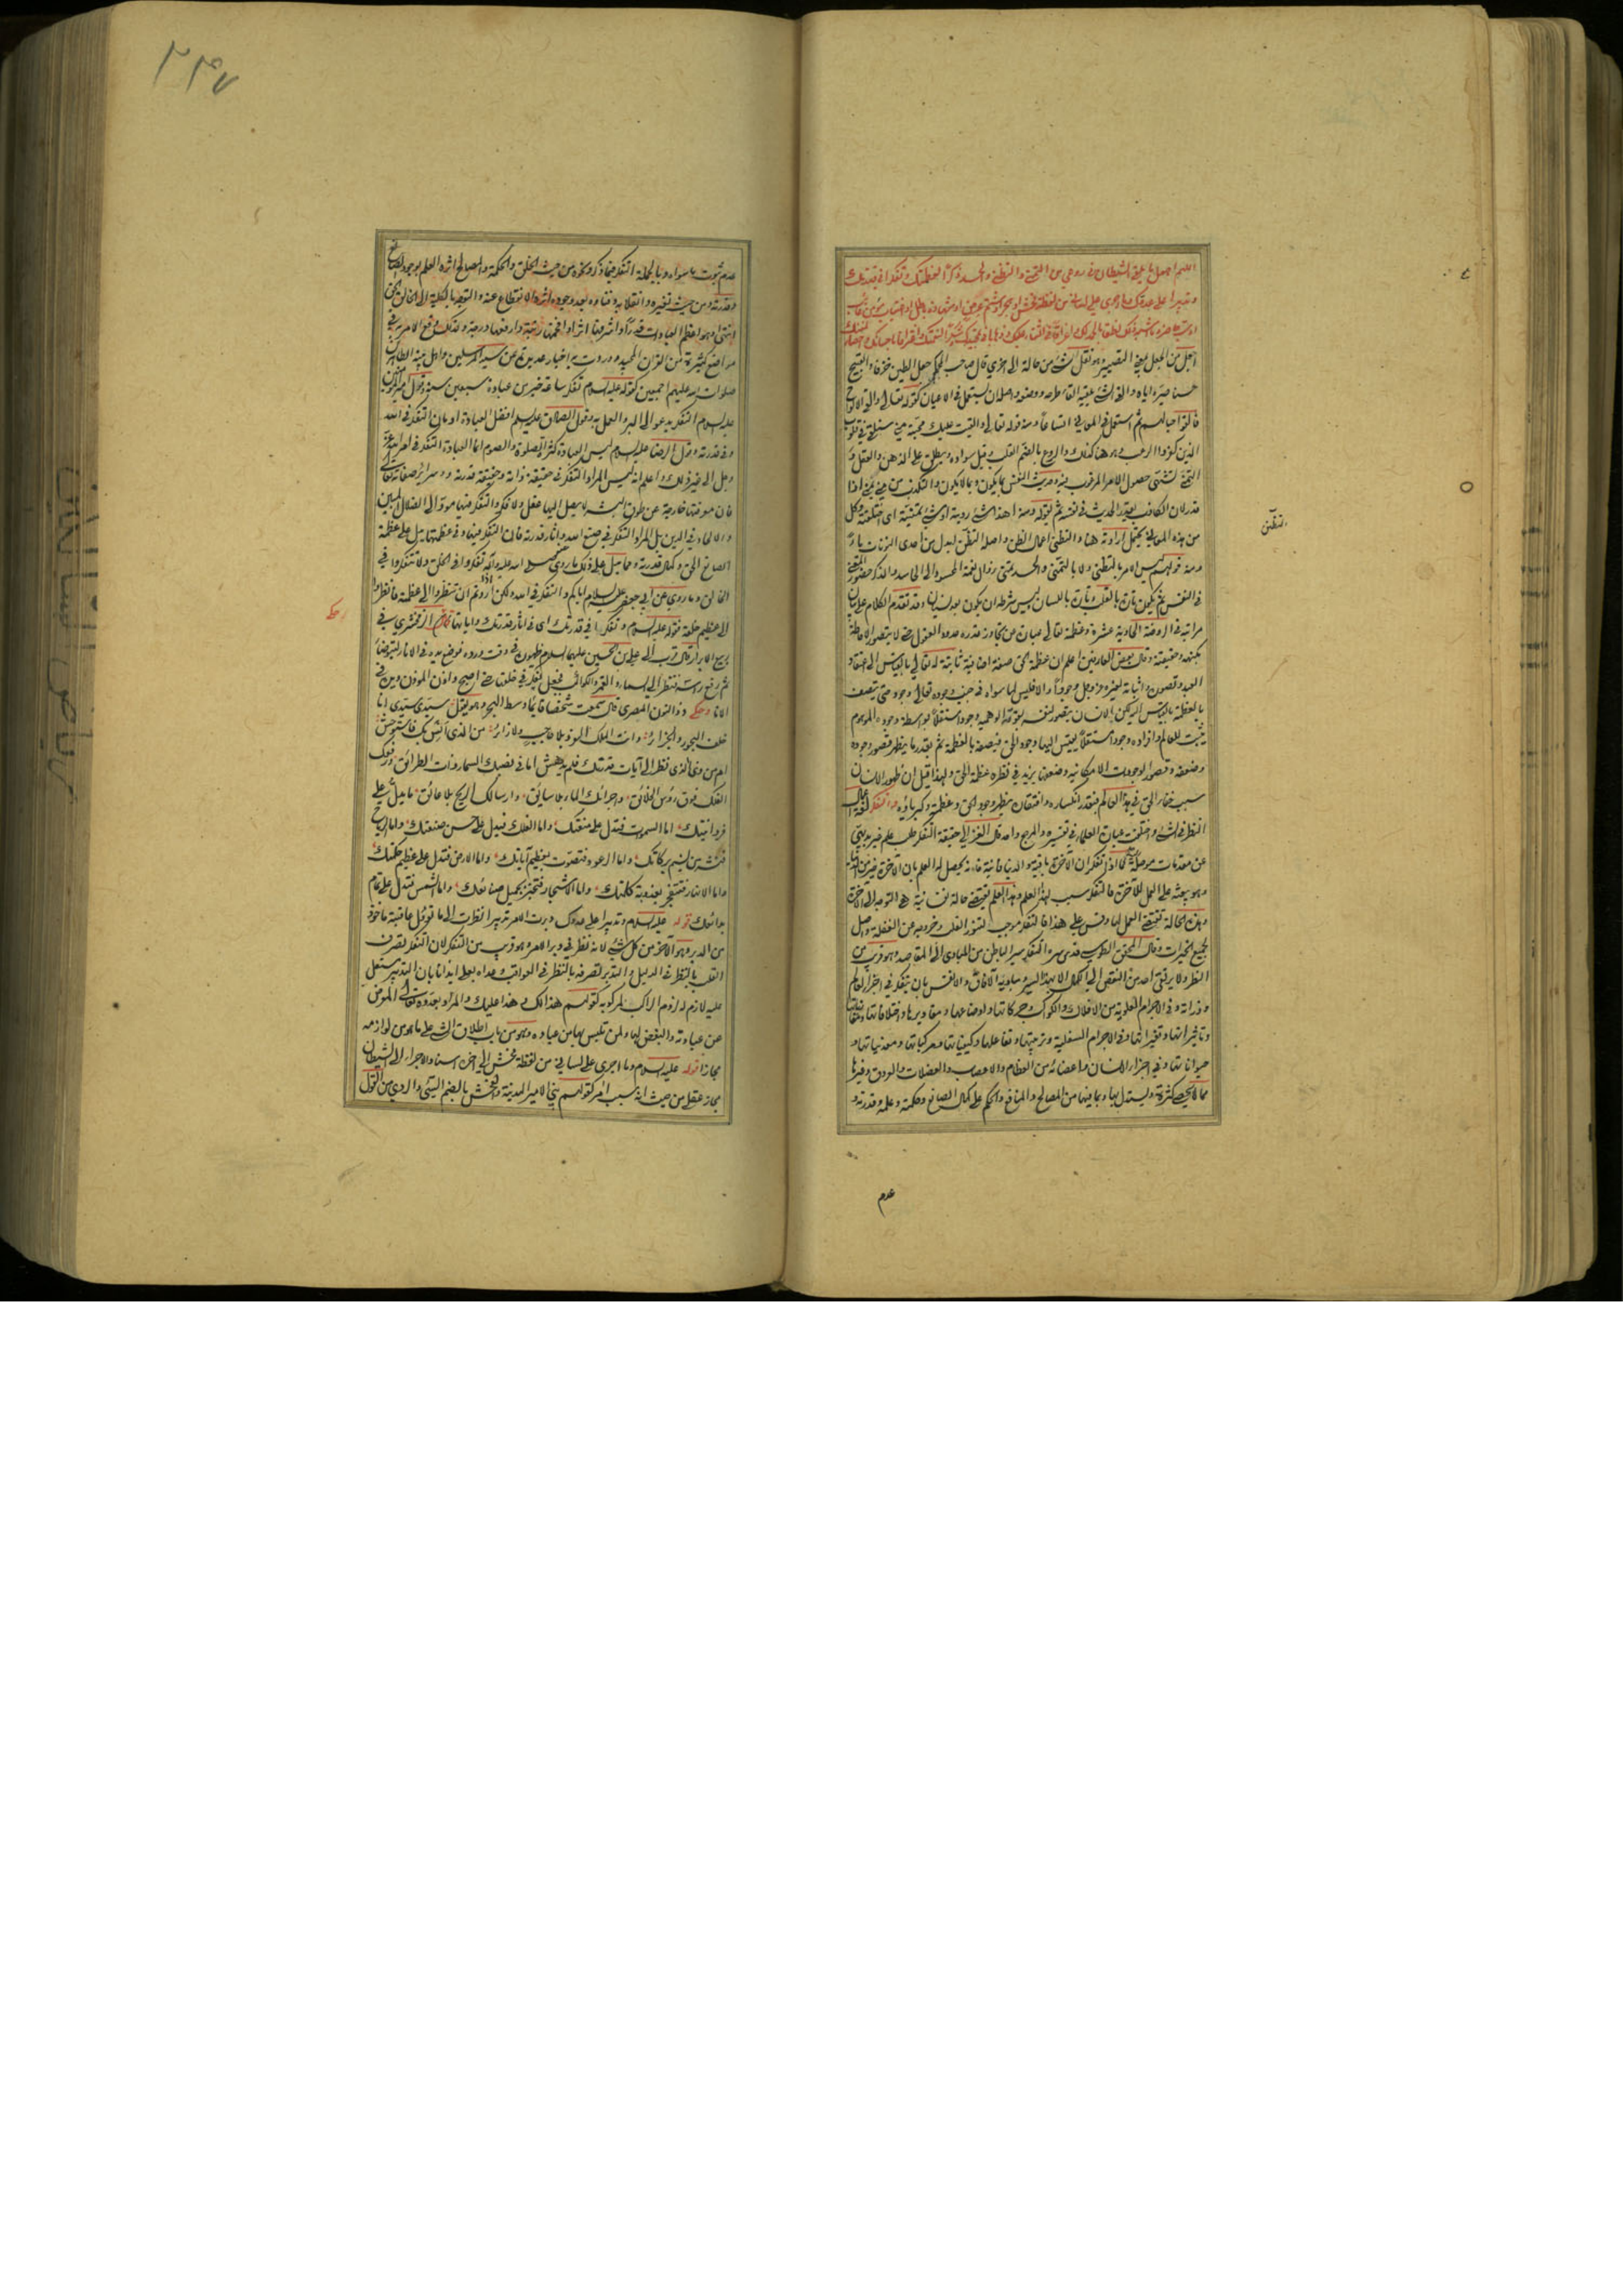 اللهم اجعل ما يلقي الشيطان في روعي من التمني والتظني والحسد ذكرا لعظمتك وتفكرا في قدرتك
وتدبيرا على عدوك وما اجرى على لساني من لفظة فحش او هجر او شتم عرض او شهادة باطل او اغتياب مؤمن غائب
او سب حاضر وما اشبه ذلك نطقا بالحمد لك واغراقا في الثناء عليك وذهابا في تمجيدك وشكرا لنعمتك واعترافا باحسانك واحصاء لمننك
اجعل من الجعل بمعنى التصيير وهو نقل الشيء من حالة الى اخرى قال صاحب المحكم جعل الطين خزفا والقبيح
حسنا صيره اياه والقى الشيء يلقيه القاء طرحه ووضعه واصله ان يستعمل في الاعيان كقوله تعالى والقى الالواح
فالقوا حبالهم ثم استعمل في المعاني اتساعا ومنه قوله تعالى والقيت عليك محبة مني سنلقي في قلوب
الذين كفروا الرعب وهو هنا كذلك والروع بالضم القلب وقيل سواده ويطلق على الذهن والعقل و
التمني تشهي حصول الامر المرغوب فيه وحديث النفس بما يكون وبما لا يكون والتكذب من مني يمني اذا
قدر لان الكاذب يقدر الحديث في نفسه ثم يقوله ومنه اهذا شيء رويته او شيء تمنيته اى اختلقته وكل
من هذه المعاني يحتمل ارادته هنا والتظني اعمال الظن واصله التظنن ابدل من احدى النونات ياء
ومنه قولهم ليس الامر بالتظني ولا بالتمني والحسد تمني زوال نعمة المحسود الى الحاسد والذكر حضور المعنى
في النفس ثم يكون تارة بالقلب وتارة باللسان وليس شرطه ان يكون بعد نسيان وقد تقدم الكلام على بيان
مراتبه في الروضة الحادية عشرة وعظمته تعالى عبارة عن تجاوز قدره حدود العقول حتى لا يتصور الاحاطة
بكنهه وحقيقته وقال بعض العارفين اعلم ان عظمة الحق صفة اضافية ثابتة له تعالى بالقياس الى اعتقاد
العبد وتصوره واثباته لغيره عز وجل وجودا والا فليس لما سواه في جنب وجوده تعالى وجود حتى يتصف
بالعظمة بالقياس اليه لكن الانسان يتصور لنفسه بقوته الوهمية وجودا مستقلا وبواسطة وجوده الموهوم
يثبت للعالم وافراده وجودا مستقلا يقيس اليها وجود الحق فيصفه بالعظمة ثم بقدر ما يظهر قصور وجوده
وضعفه وقصور الوجودات الامكانية وضعفها يزيد في نظره عظمة الحق ولهذا قيل ان ظهور الانسان
سبب خفاء الحق في هذا العالم فبقدر انكساره وافتقاره يظهر وجود الحق وعظمته وكبرياؤه والتفكر لغة اعمال
النظر في الشيء واختلفت عبارات العلماء في تفسيره والمرجع واحد قال الغزالي حقيقة التفكر طلب علم غير بديهي
عن مقدمات موصلة اليه كما اذا تفكر ان الآخرة باقية والدنيا فانية فانه يحصل له العلم بان الآخرة خير من الدنيا
وهو يبعثه على العمل للآخرة فالتفكر سبب لهذا العلم وهذا العلم يقتضي حالة نفسانية هي التوجه الى الآخرة
وهذه الحالة تقتضي العمل لها وقس على هذا فالتفكر موجب لتنور القلب وخروجه عن الغفلة واصل
لجميع الخيرات وقال المحقق الطوسي قدس سره التفكر سير الباطن من المبادى الى المقاصد وهو قريب من
النظر ولا يرتقي احد من النقص الى الكمال الا بهذا السير ومباديه الآفاق والانفس بان يتفكر في اجزاء العالم
وذراته وفي الاجرام العلوية من الافلاك والكواكب وحركاتها واوضاعها ومقاديرها واختلافاتها ومقارناتها
وتاثيراتها وتغيراتها وفي الاجرام السفلية وترتيبها وتفاعلها وكيفياتها ومركباتها ومعدنياتها و
حيواناتها وفي اجزاء الانسان واعضائه من العظام والاعصاب والعضلات والعروق وغيرها
مما لا يحصى كثرة ويستدل بها وبما فيها من المصالح والمنافع والحكم على كمال الصانع وحكمته وعلمه وقدرته و
عدم
التظنن
٢٣٩٧
عدم ثبوت ما سواه وبالجملة التفكر فيما ذكر ونحوه من حيث الخلق والحكمة والمصالح اثره العلم بوجود الصانع
وقدرته ومن حيث تغيره وانقلابه وفناؤه بعد وجوده اثره الانقطاع عنه والتوجه بالكلية الى الخالق الحق
انتهى وهو اعظم العبادات قدرا واشرفها اثرا وافخمها رتبة وارفعها درجة ولذلك وقع الامر به في
مواضع كثيرة من القرآن المجيد ووردت به اخبار عديدة عن سيد المرسلين واهل بيته الطاهرين
صلوات الله عليهم اجمعين كقوله عليه السلام تفكر ساعة خير من عبادة سبعين سنة وقول امير المؤمنين
عليه السلام التفكر يدعو الى البر والعمل به وقول الصادق عليه السلم افضل العبادة ادمان التفكر في الله
وفي قدرته وقول الرضا عليه السلام ليس العبادة كثرة الصلوة والصوم انما العبادة التفكر في امر الله عز
وجل الى غير ذلك واعلم انه ليس المراد التفكر في حقيقة ذاته وحقيقة قدرته وسرائر صفاته تعالى
فان معرفتها خارجة عن طوق البشر لا يصل اليها عقل ولا فكر والتفكر فيها مؤد الى الضلال المبين
والالحاد في الدين بل المراد التفكر في صنع الله وآثار قدرته فان التفكر فيها وفي عظمتها يدل على عظمة
الصانع الحق وكمال قدرته ومما يدل على ذلك ما روي عنه صلى الله عليه وآله تفكروا في الخلق ولا تتفكروا في
الخالق وما روي عن ابي جعفر عليه السلام اياكم والتفكر في الله ولكن اذا اردتم ان تنظروا الى عظمته فانظروا
الى عظيم خلقه فقوله عليه السلام وتفكرا في قدرتك اى في آثار قدرتك وآياتها قال الزمخشري في
ربيع الابرار قال قرب الى علي بن الحسين عليهما السلام طهوره في وقت ورده فوضع يده في الاناء ليتوضأ
ثم رفع راسه فنظر الى السماء والقمر والكواكب فجعل يفكر في خلقها حتى اصبح واذن المؤذن ويده في
الاناء وحكى ذو النون المصري قال سمعت شخصا قائما وسط البحر وهو يقول سيدي سيدي انا
خلف البحور والجزائر وانت الملك الفرد بلا حاجب ولا زائر من الذي انس بك فاستوحش
ام من ذي الذي نظر الى آيات قدرتك فلم يدهش اما في نصبك السماء ذات الطرائق ورفعك
الفلك فوق رؤس الخلائق واجرائك الماء بلا سائق وارسالك الريح بلا عائق ما يدل على
فردانيتك اما السموات فتدل على منعتك واما الفلك فيدل على حسن صنعتك واما الرياح
فتنشر من نسيم بركاتك واما الرعد فتصوت بعظيم آياتك واما الارض فتدل على عظيم حكمتك
واما الانهار فتتفجر بعذوبة كلمتك واما الاشجار فتخبر بجميل صنائعك واما الشمس فتدل على تمام
بدائعك قوله عليه السلام وتدبيرا على عدوك دبرت الامر تدبيرا نظرت الى ما تؤول عاقبته ماخوذ
من الدبر وهو الآخر من كل شيء لانه نظر في دبر الامر وهو قريب من التفكر لان التفكر تصرف
القلب بالنظر في الدليل والتدبر تصرفه بالنظر في العواقب وعداه بعلى ايذانا بان التدبير مستعل
عليه لازم له لزوم الراكب لمركوبه كقولهم هذا لك وهذا عليك والمراد بعدوه تعالى المعرض
عن عبادته والمبغض لها ولمن تلبس بها من عباده وهو من باب اطلاق الشيء على ما هو من لوازمه
مجازا قوله عليه السلام وما اجرى على لساني من لفظة فحش الى آخره اسناد الاجراء الى الشيطان
مجاز عقلي من حيث انه سبب آمر كقولهم بنى الامير المدينة والفحش بالضم السيء والردي من القول
حكى